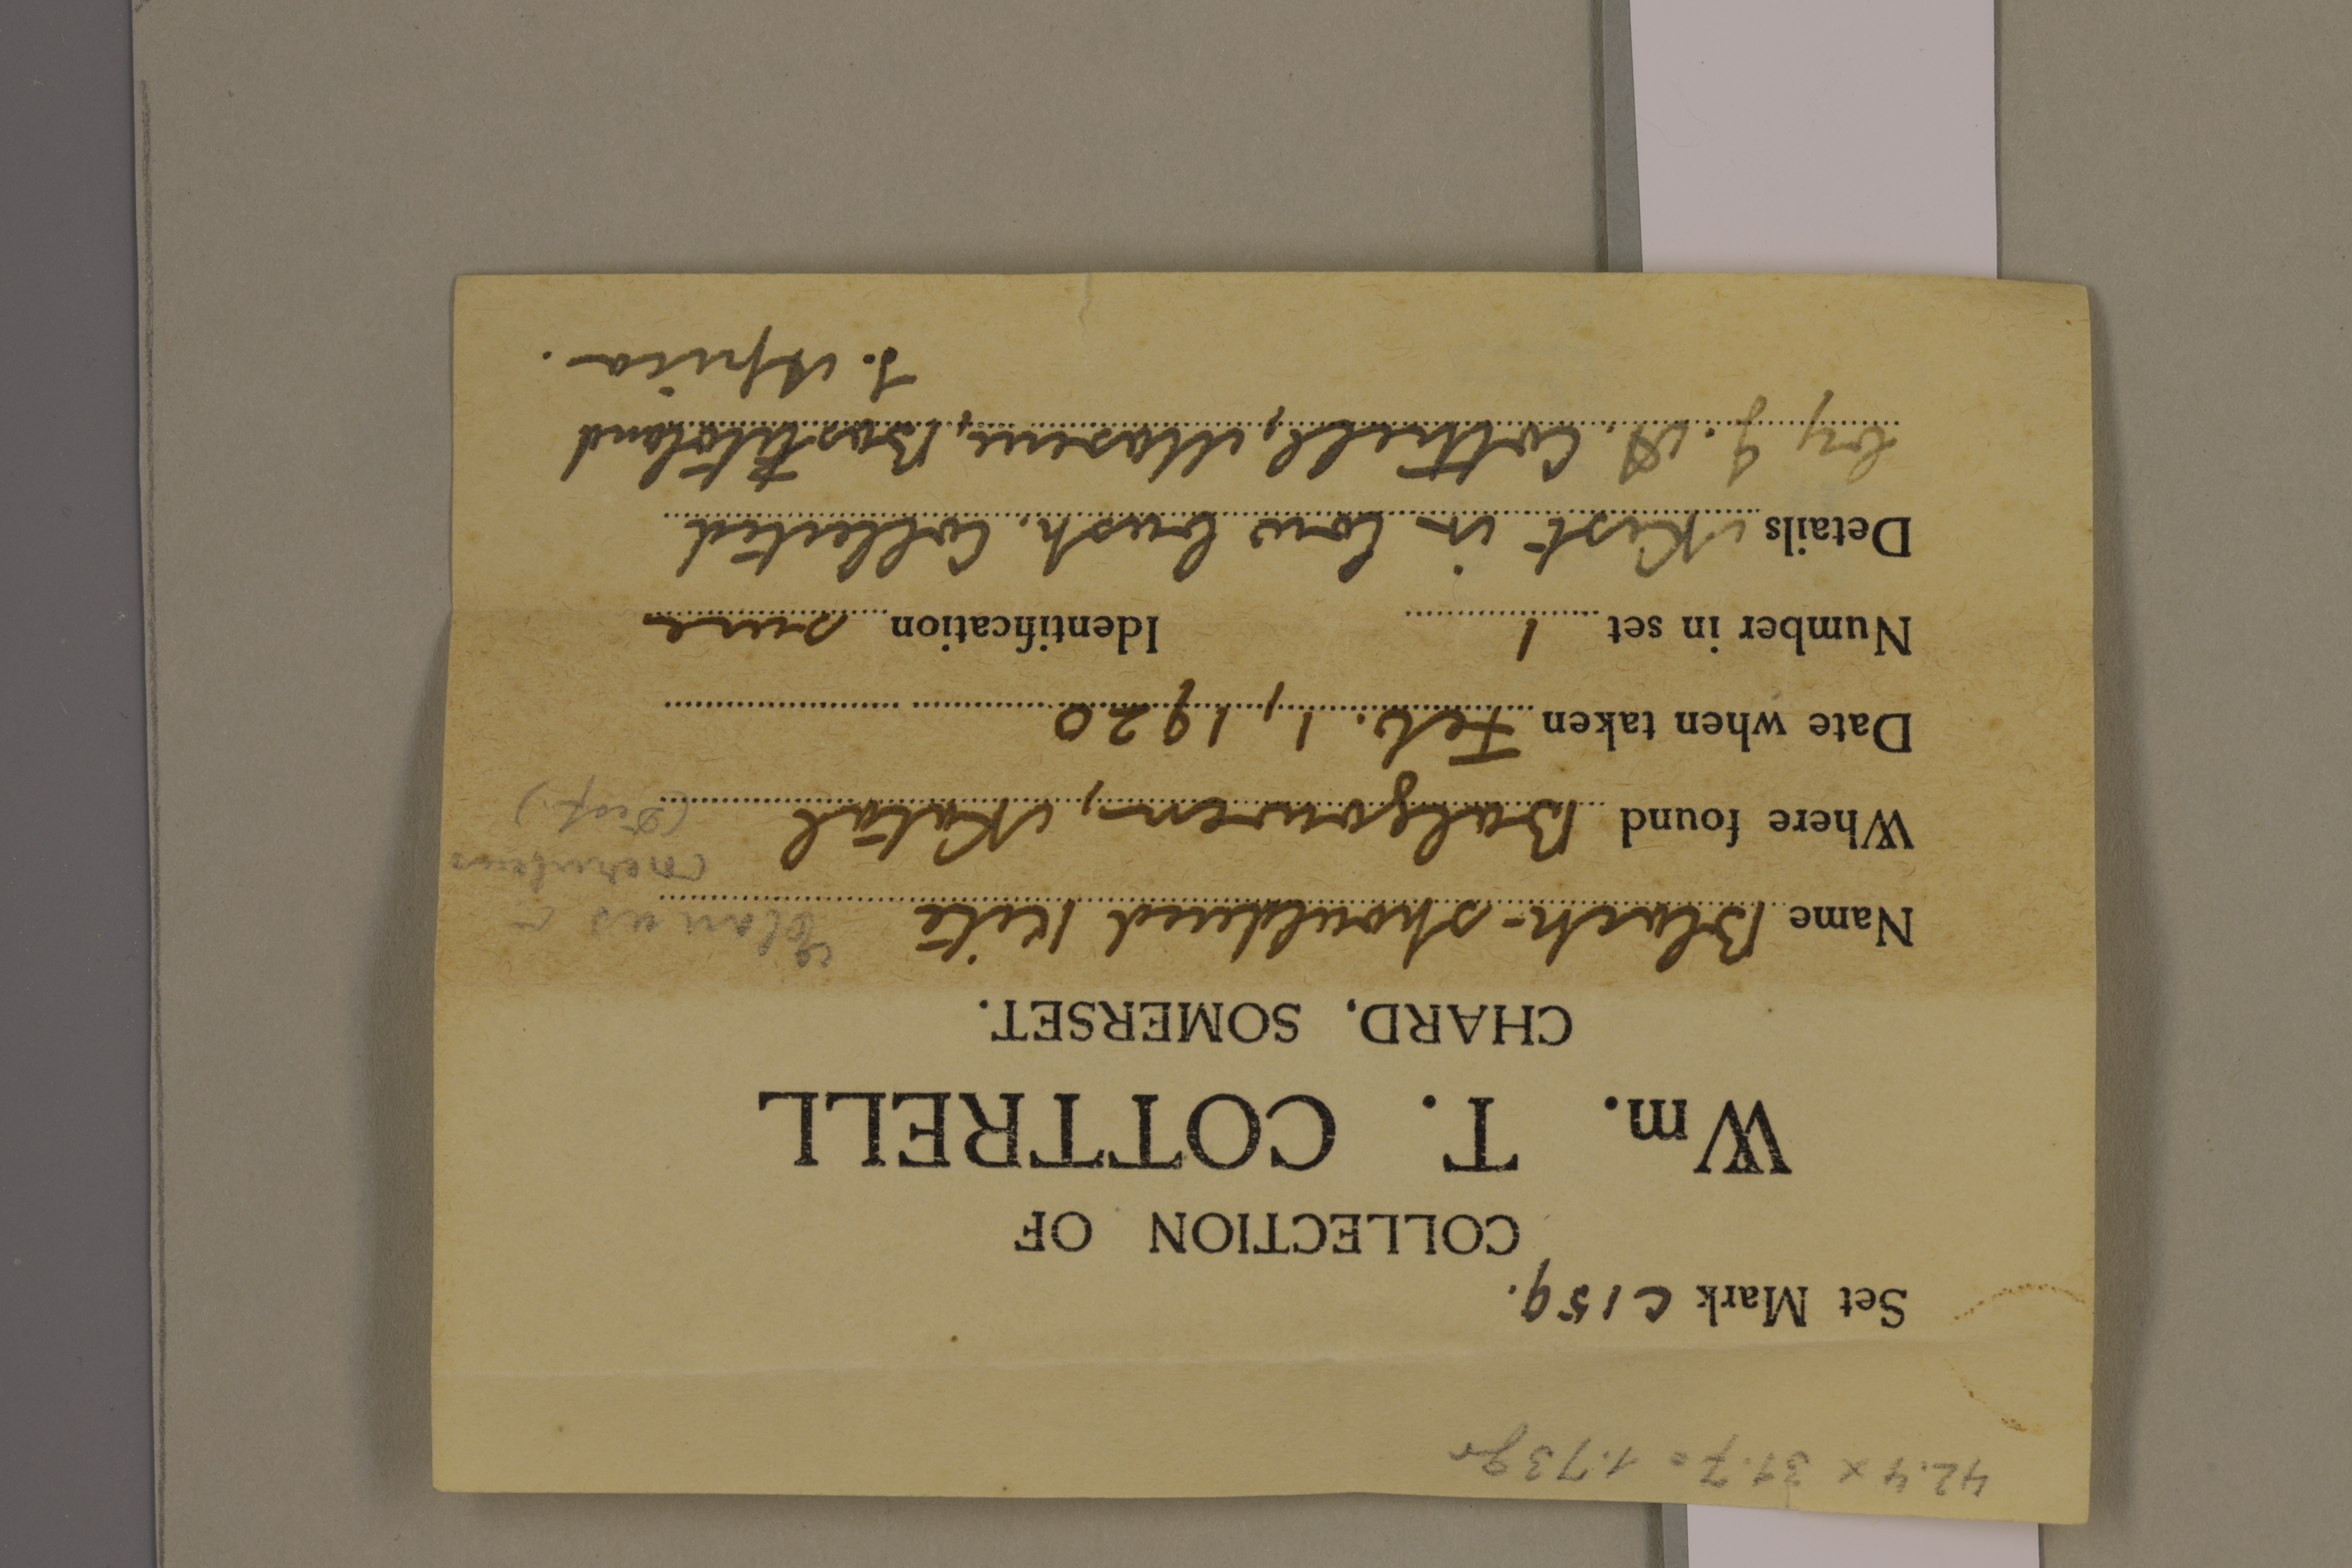 42.4 x 31.7 = 1.73 gr
Set Mark C 159.
COLLECTION OF
Wm. T. COTTRELL
CHARD, SOMERSET.
Name Black-shouldered Kite Elanus c.
caeruleus
(Desf.)
Where found Balgowen, Natal
Date when taken Feb. 1, 1920
Number in set 1 Identification sure
Details Nest in low bush. Collected
by J. A. Cottrell, Maseru, Basutoland
S. Africa.